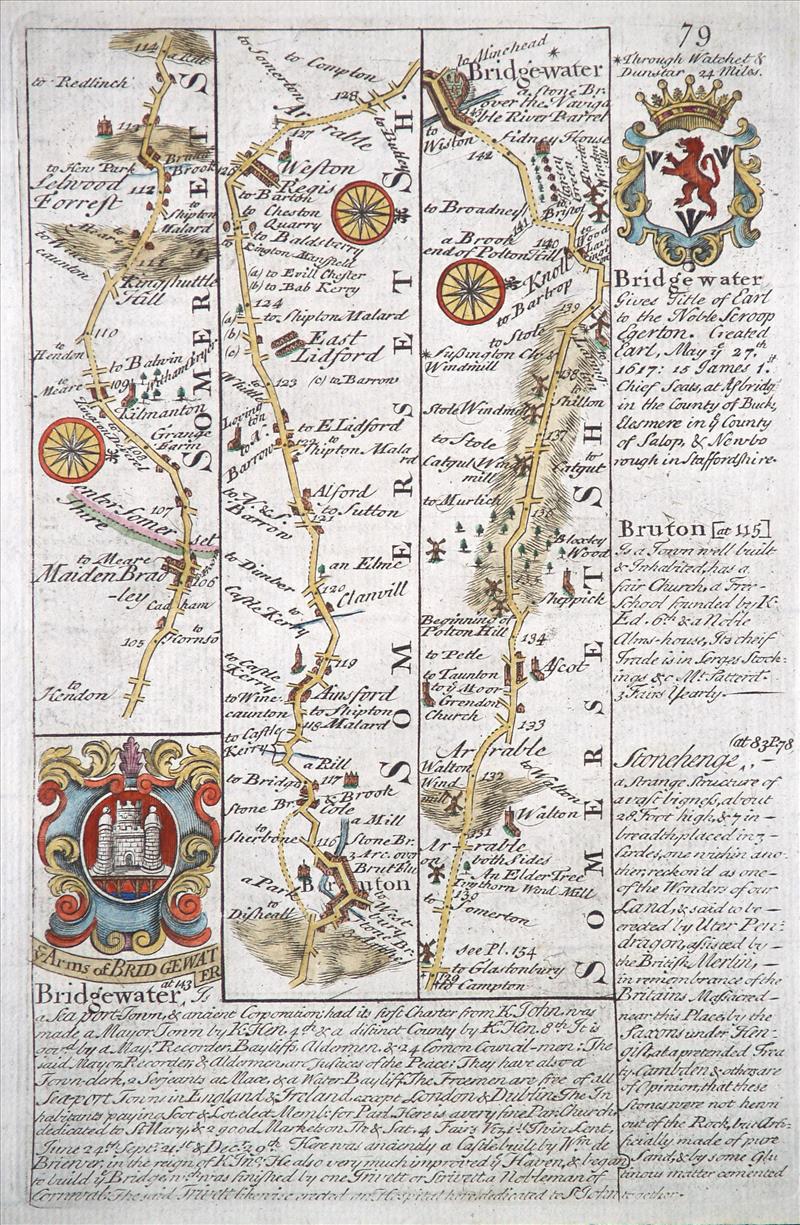 79
114
a Rill
to Redlinch
113
Brook
to New Park
Selwood
Forrest
112
to
Shipton
Malard
to Wine
caunton
111
Kingshuttle
Hill
110
to
Hendon
to Balwin
to
Meare
109
Kilmanton
108
Grange
Farm
107
enter Somer
set
Shire
to Meare
Maiden Brad
-ley
106
Cadsham
105
to
Hornso
to
Kendon
SOMERSETS
to Somerton
to Compton
128
Arrable
127
to Dutles
126
Weston
Regis
to Barton
to Cheston
Quarry
to Baldsberry
to Kington Mansfield
(a) to Evill Chester
(b) to Bab Kerry
124
(a)
to Shipton Malard
(b)
(c)
East
Lidford
123
(c) to Barrow
Lovington
to A.
Barrow
to E Lidford
122
to
Shipton Mala
rd
Alford
to Sutton
121
to N. & S.
Barrow
an Elme
to Dunber
120
Clanvill
Castle Kerry
119
to Castle
Kerry
to Wine
caunton
Ansford
to Shipton
Malard
118
to Castle
Kerry
a Rill
to Bridga
117
Stone Br.
& Brook
Cole
a Mill
to
Sherbone
116
Stone Br.
3 Arc. over
Brut Flu
Bruton
a Park
to
Dishealt
SOMERSETSH.
to Minehead *
Bridgewater
a stone Br.
over the Naviga
ble River Parret
143
to
Wiston
142
Sidney House
to Bristol
to Broadney
141
a Brook
end of Polton Hill
140
Knoll
to Bartrop
to Wood
Lavington
139
to Stole
* Sussington Ch. &
Windmill
138
Shillon
Stole Windmill
137
to Stole
to
Catgut
Catgut Wind
mill
to Murlich
136
Bloxley
Wood
135
Sheppick
Beginning of
Polton Hill
134
to Petle
to Taunton
to y Moor
Grendon
Church
Ascot
133
Arrable
to Walton
Walton
Wind
mill
132
Walton
131
Arrable
on both Sides
An Elder Tree
Ivythorn Wind Mill
130
to
Somerton
see Pl. 154
to Glastonbury
129
to Campton
SOMERSETSH
* Through Watchet &
Dunstar 24 Miles.
Bridgewater
Gives Title of Earl
to the Noble Scroop
Egerton. Created
Earl, May yͤ 27.th
1617: 15 James 1.st
Chief Seats, at Asbridg
in the County of Buck,
Elesmere in yͤ County
of Salop, & Newbo
rough in Staffordshire.
Bruton [at 115]
Is a Town well built
& Inhabited, has a
fair Church, a Free-
School founded by K.
Ed. 6th & a Noble
Alms-house, Its cheif
Trade is in Serges Stock-
ings &c Mt. Satterd-
3 Fairs Yearly.
(at 83 P. 78
Stonehenge,
a Strange Structure of
a vast bignes, about
28 Foot high, & 7 in
breadth, placed in 3-
Circles, one within ano-
ther, reckon'd as one
of the Wonders of our
Land, & said to be
erected by Uter Pen-
dragon, assisted by
the British Merlin,
in remembrance of the
Britains Massacred
near this Place, by the
Saxons under Hen-
gist, at a pretended Trea
ty. Cambden & others are
of Opinion, that these
Stones were not hewn
out of the Rock, but Arti-
ficially made of pure
Sand, & by some Glu
tinous matter cemented
together.
yͤ Arms of BRIDGEWAT
ER
Bridgewater, at 143 Is
a Sea port-Town, & ancient Corporation had its first Charter from K. John, was
made a Mayor Town by K. Hen. 4.th & a distinct County by K. Hen. 8.th It is
gov.d by a May.r Recorder, Bayliffs, Aldermen, & 24 Comon Council-men: The
said Mayor, Recorder, & Aldermen are Justices of the Peace: They have also a
Town-clerk, 2 Serjeants at Mace, & a Water Bayliff. The Freemen are free of all
Seaport Towns in England & Ireland, except London & Dublin. The In
habitants paying Scot & Lot elect Memb.s for Parl. Here is a very fine Par. Church
dedicated to St. Mary, & 2 good Markets on Th. & Sat. 4 Fairs Viz. 1st Th. in Lent,
June 24.th Sept.r 21.st & Dec.r 29.th Here was anciently a Castle built by W.m de
Briewer, in the reign of K. Jn.o; He also very much improved yͤ Haven, & began
to build yͤ Bridge, w.ch was finished by one Trivett or Strivett a Nobleman of
Cornwal: The said Trivett likewise erected an Hospital here dedicated to St. John